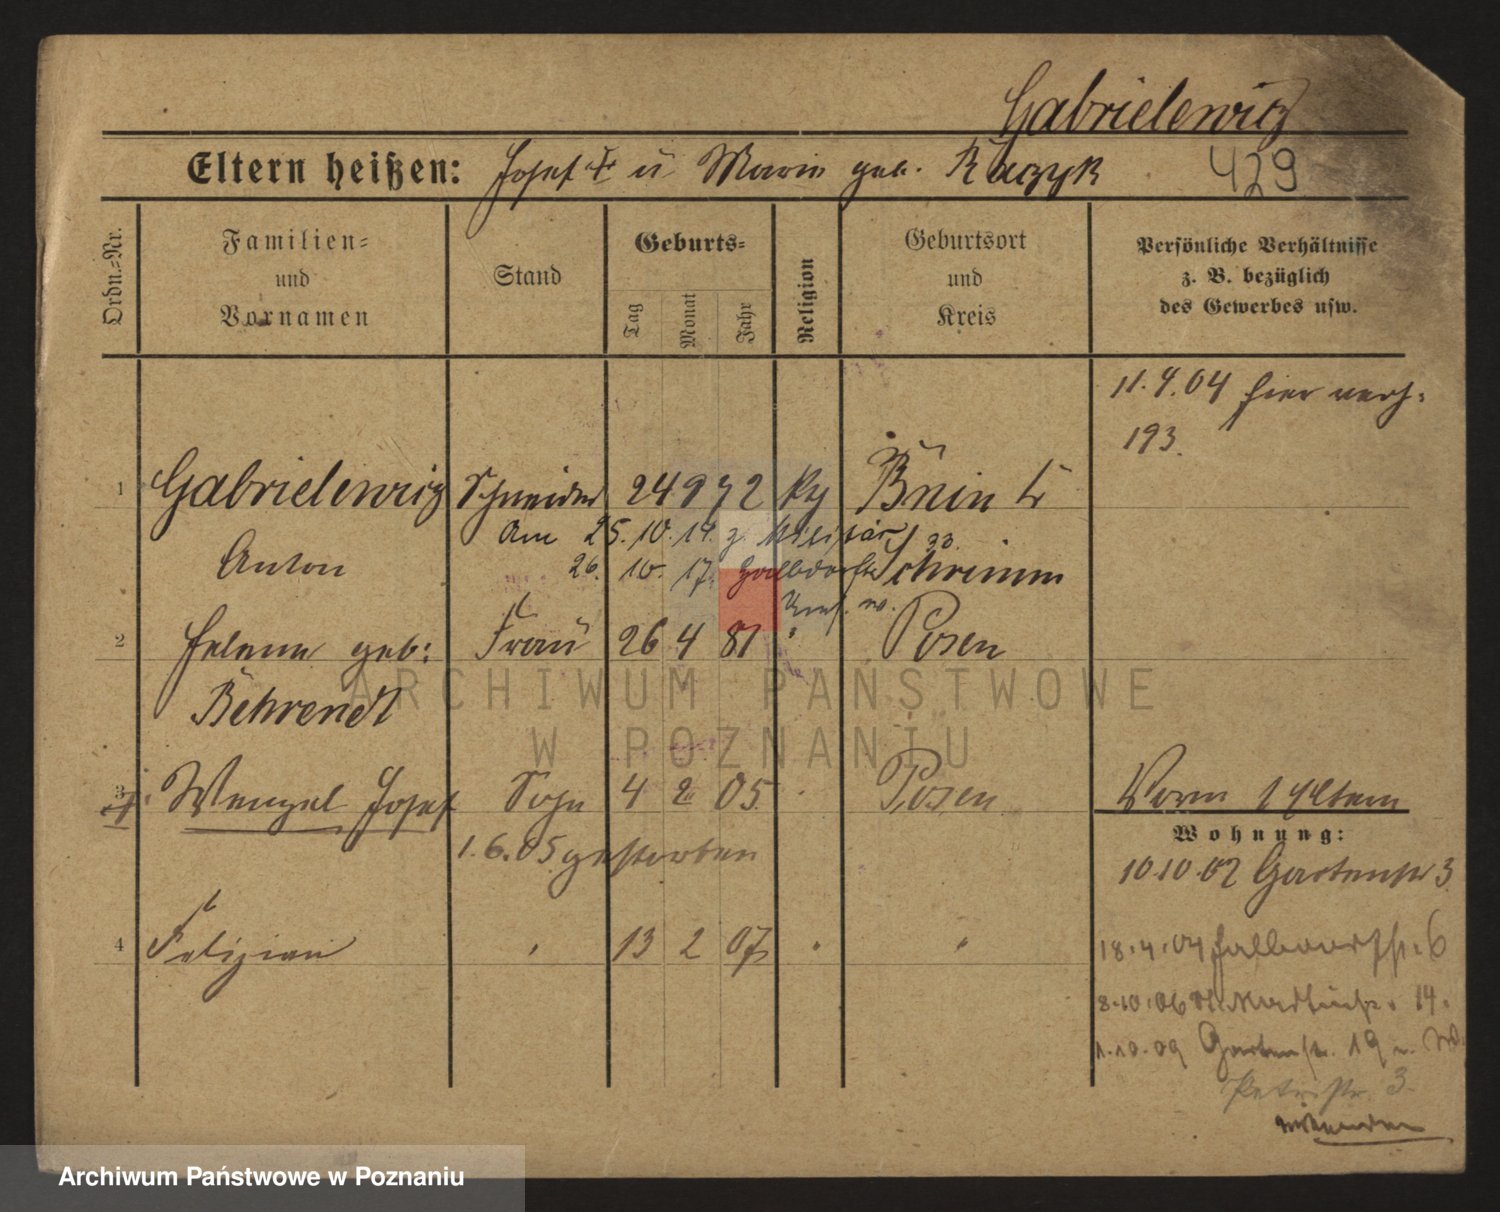 Gabrielewicz
Eltern heißen: Josef † u Marie geb. Raczyk 429
Ordn.-Nr.
Familien-
und
Vornamen
Stand
Geburts-
Tag
Monat
Jahr
Religion
Geburtsort
und
Kreis
Persönliche Verhältnisse
z. B. bezüglich
des Gewerbes usw.
11.4.04 hier verh.
193.
1 Gabrielewicz Schneider 24 9 72 Bnin Kr
Am 25.10.17. z. Militär
Anton 26. 10. 17. Schrimm
2 Helene geb: Frau 26 4 81 " Posen
Behrendt
ARCHIWUM PAŃSTWOWE
W POZNANIU
3 Wenzel Josef Sohn 4 2 05 Posen
1.6.05 gestorben
Wohnung:
10.10.02 Gartenstr 3
4 Felizian " 13 2 07 " "
18.4.04 6
8.10.06 14.
1.10.09 Gartenstr. 19
Petristr. 3.
Archiwum Państwowe w Poznaniu